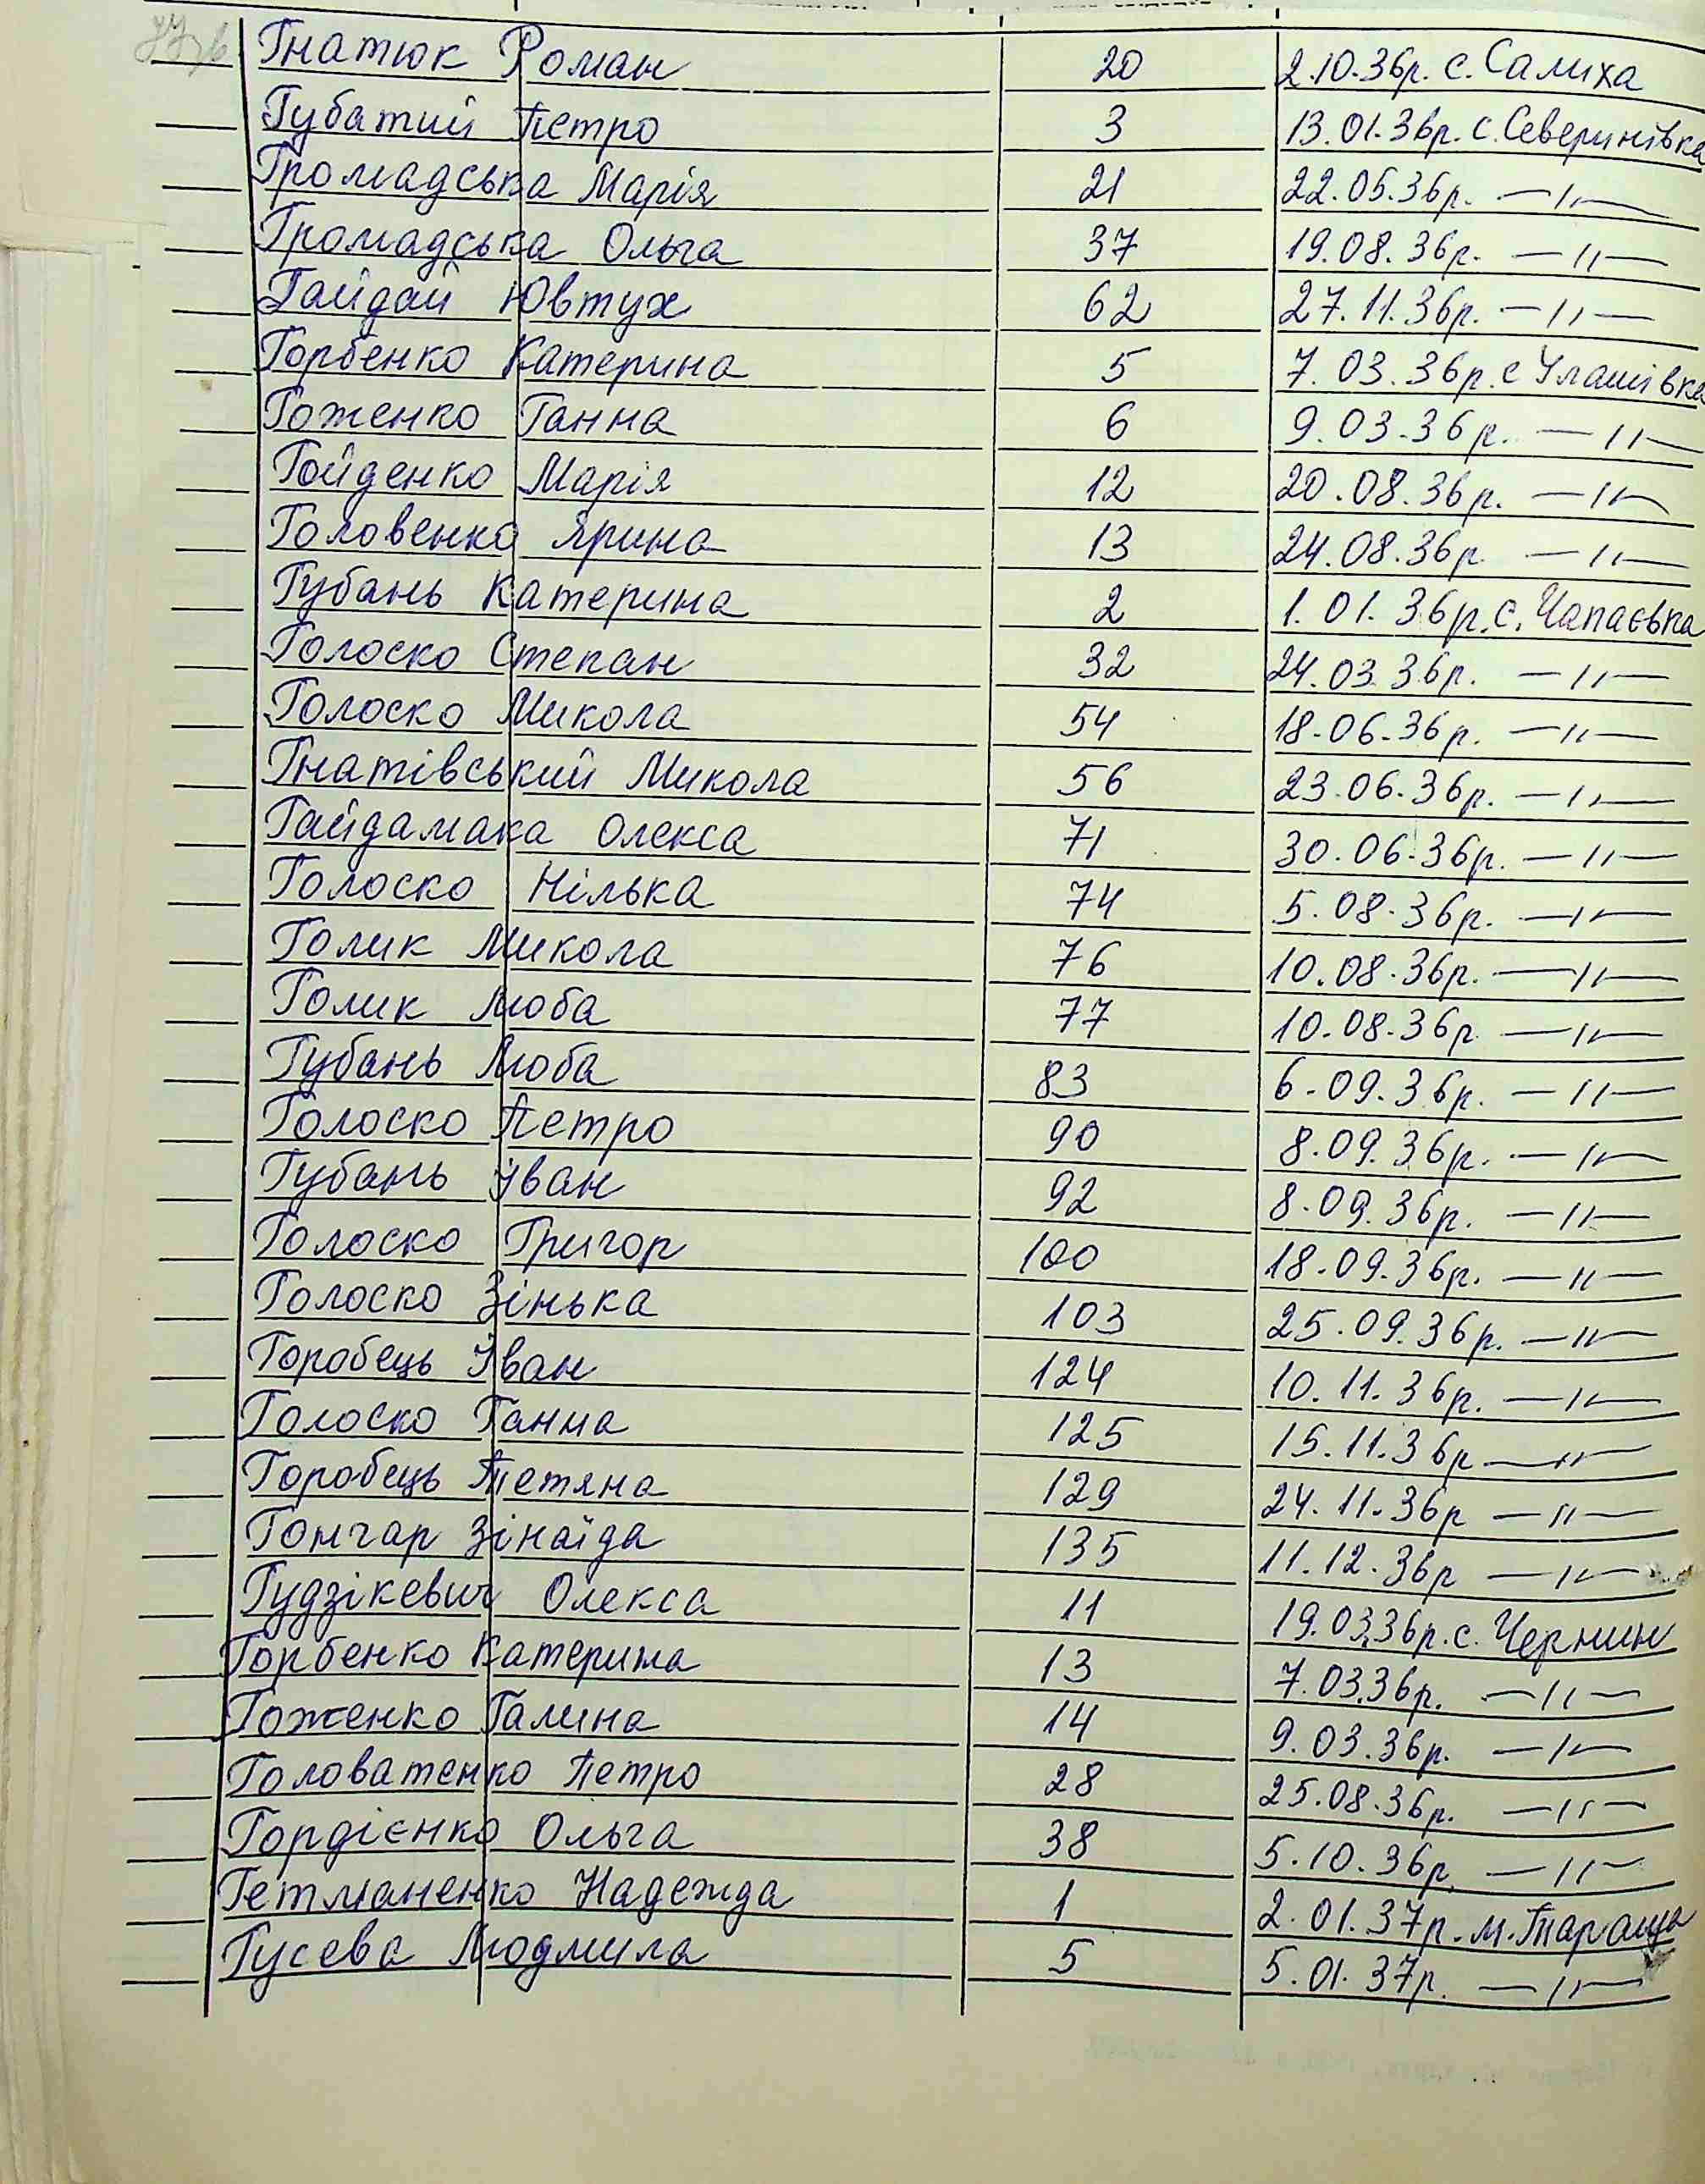 Гнатюк Роман 20 2.10.36р. с. Салиха
Губатий Петро 3 13.01.36р. с. Северинівка
Громадська Марія 21 22.05.36р. —"—
Громадська Ольга 37 19.08.36р. —"—
Гайдай Ювтух 62 27.11.36р. —"—
Горбенко Катерина 5 7.03.36р. с Улашівка
Гоженко Ганна 6 9.03.36р. —"—
Гойденко Марія 12 20.08.36р. —"—
Головенко Ярина 13 24.08.36р. —"—
Губань Катерина 2 1.01.36р. с. Чапаєвка
Голоско Степан 32 24.03.36р. —"—
Голоско Микола 54 18.06.36р. —"—
Гнатівський Микола 56 23.06.36р. —"—
Гайдамака Олекса 71 30.06.36р. —"—
Голоско Нілька 74 5.08.36р. —"—
Голик Микола 76 10.08.36р. —"—
Голик Люба 77 10.08.36р —"—
Губань Люба 83 6.09.36р. —"—
Голоско Петро 90 8.09.36р. —"—
Губань Іван 92 8.09.36р. —"—
Голоско Григор 100 18.09.36р. —"—
Голоско Зінька 103 25.09.36р. —"—
Горобець Іван 124 10.11.36р. —"—
Голоско Ганна 125 15.11.36р —"—
Горобець Тетяна 129 24.11.36р —"—
Гончар Зінаїда 135 11.12.36р —"—
Гудзікевич Олекса 11 19.03.36р. с. Чернин
Горбенко Катерина 13 7.03.36р. —"—
Гоженко Галина 14 9.03.36р. —"—
Головатенко Петро 28 25.08.36р. —"—
Гордієнко Ольга 38 5.10.36р. —"—
Гетманенко Надежда 1 2.01.37р. м. Тараща
Гусева Людмила 5 5.01.37р. —"—